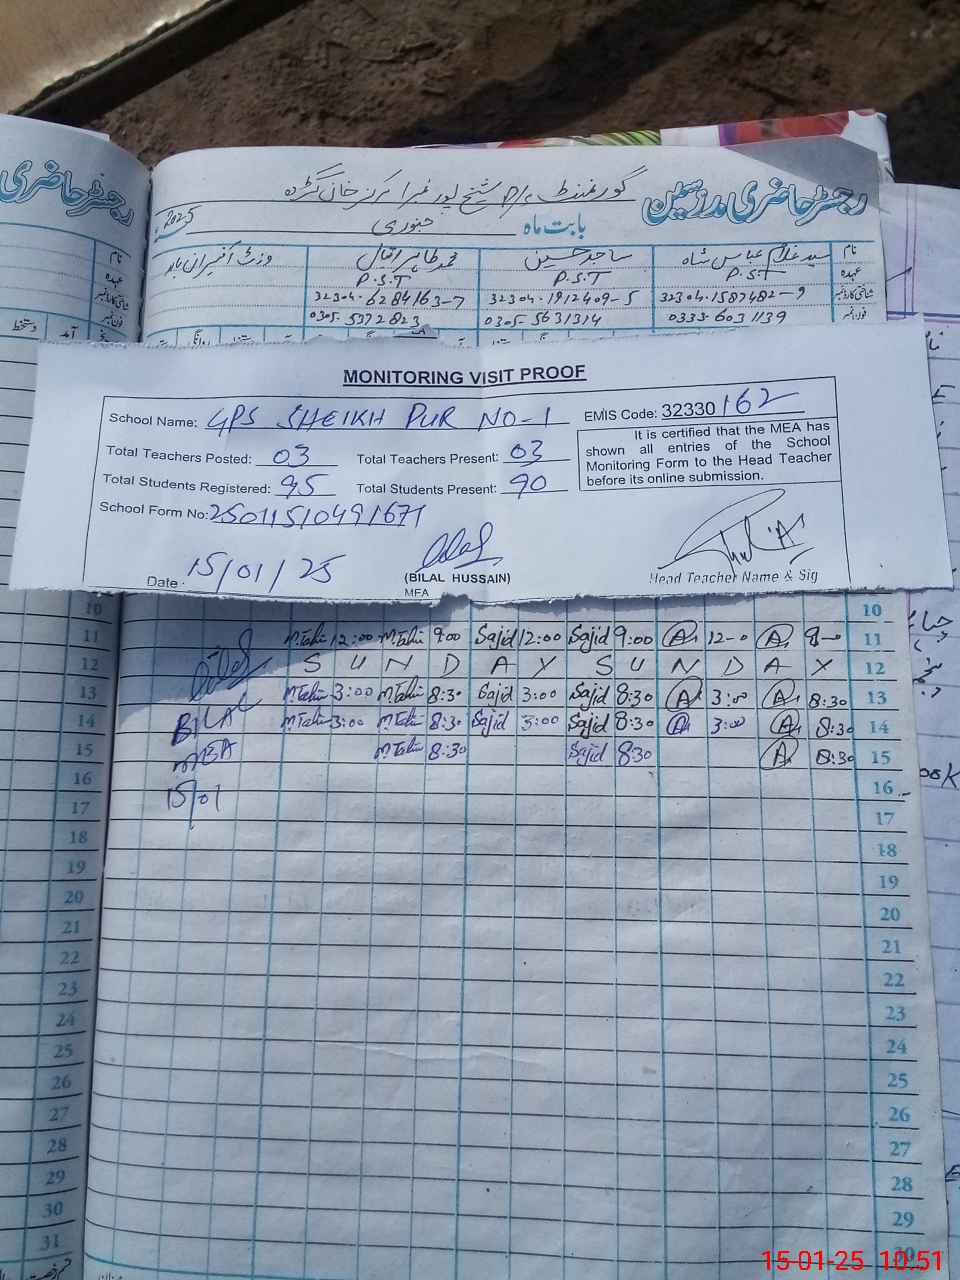 رجسٹر حاضری
رجسٹر حاضری مدرسین گورنمنٹ
بابت ماہ جنوری 2025
نام سید غلام عباس شاہ ساجد حسین محمد طاہر اقبال
عہدہ P.S.T P.S.T P.S.T
شناختی کارڈ نمبر 32304.1587482-9 32304.1912409-5 32304.6284163-7
فون نمبر 0333-6031139 0305-5631314 0305-5372823
MONITORING VISIT PROOF
School Name: GPS SHEIKH PUR NO-1 EMIS Code: 32330162
Total Teachers Posted: 03 Total Teachers Present: 03
Total Students Registered: 95 Total Students Present: 90
School Form No: 25011510491671
It is certified that the MEA has
shown all entries of the School
Monitoring Form to the Head Teacher
before its online submission.
Date: 15/01/25
(BILAL HUSSAIN)
MEA
Head Teacher Name & Sig
10 10
11 M.Tahir 12:00 M.Tahir 9:00 Sajid 12:00 Sajid 9:00 A 12-0 A 9-0 11
12 S U N D A Y S U N D A Y 12
13 M.Tahir 3:00 M.Tahir 8:30 Sajid 3:00 Sajid 8:30 A 3:00 A 8:30 13
14 BILAL M.Tahir 3:00 M.Tahir 8:30 Sajid 3:00 Sajid 8:30 A 3:00 A 8:30 14
15 MEA M.Tahir 8:30 Sajid 8:30 A 8:30 15
16 15/01 16
17 17
18 18
19 19
20 20
21 21
22 22
23 23
24 24
25 25
26 26
27 27
28 28
29 29
30 30
31
15-01-25 10:51